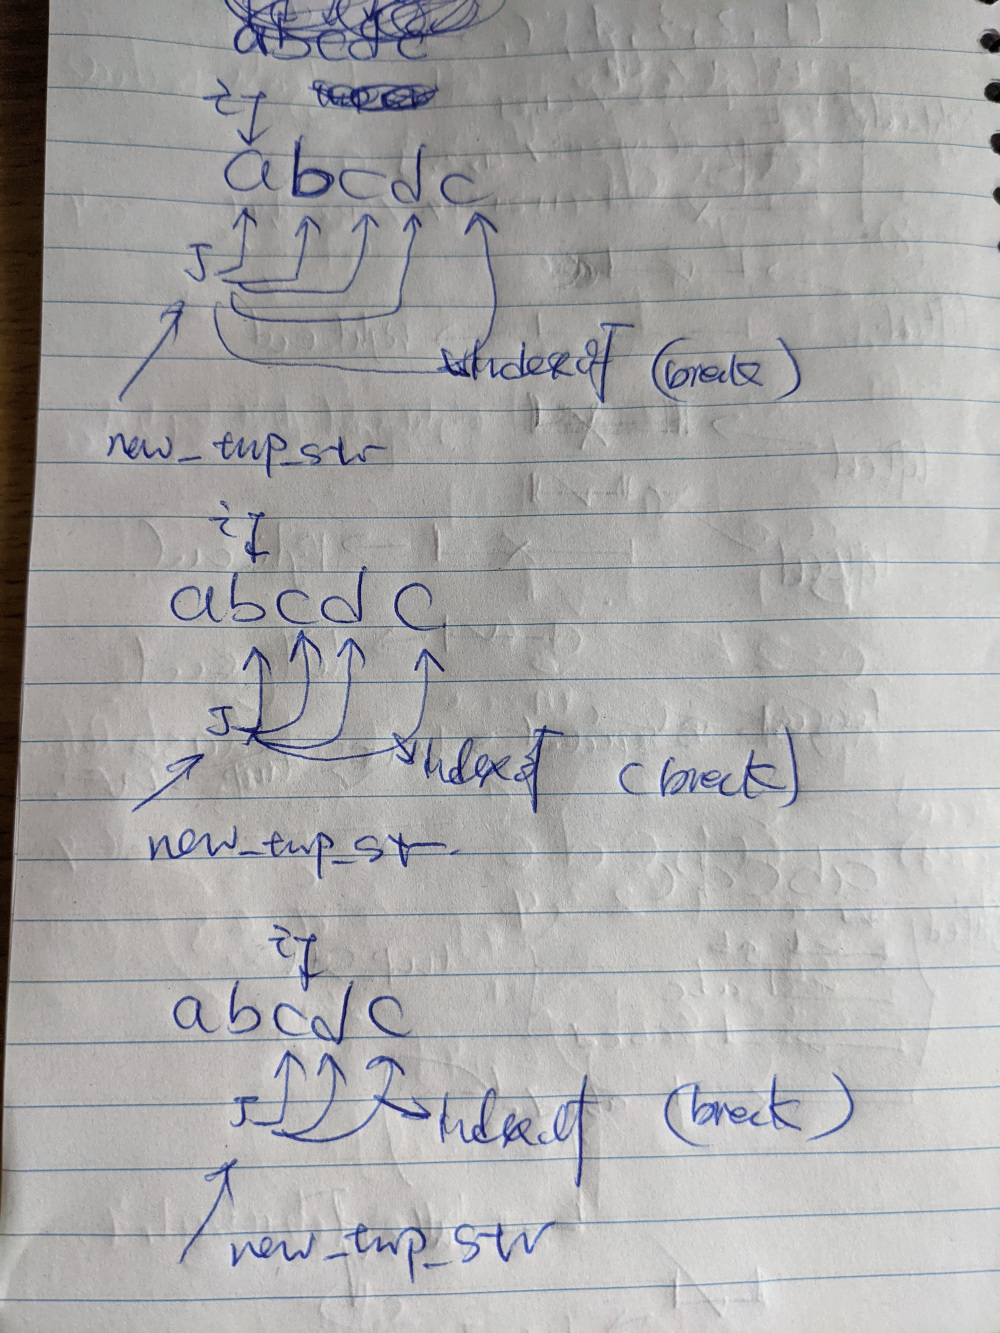 abcdc
i
abcdc
J
Indexof (break)
new_tmp_str
i
abcdc
J
Indexof (break)
new_tmp_str
i
abcdc
J
Indexof (break)
new_tmp_str